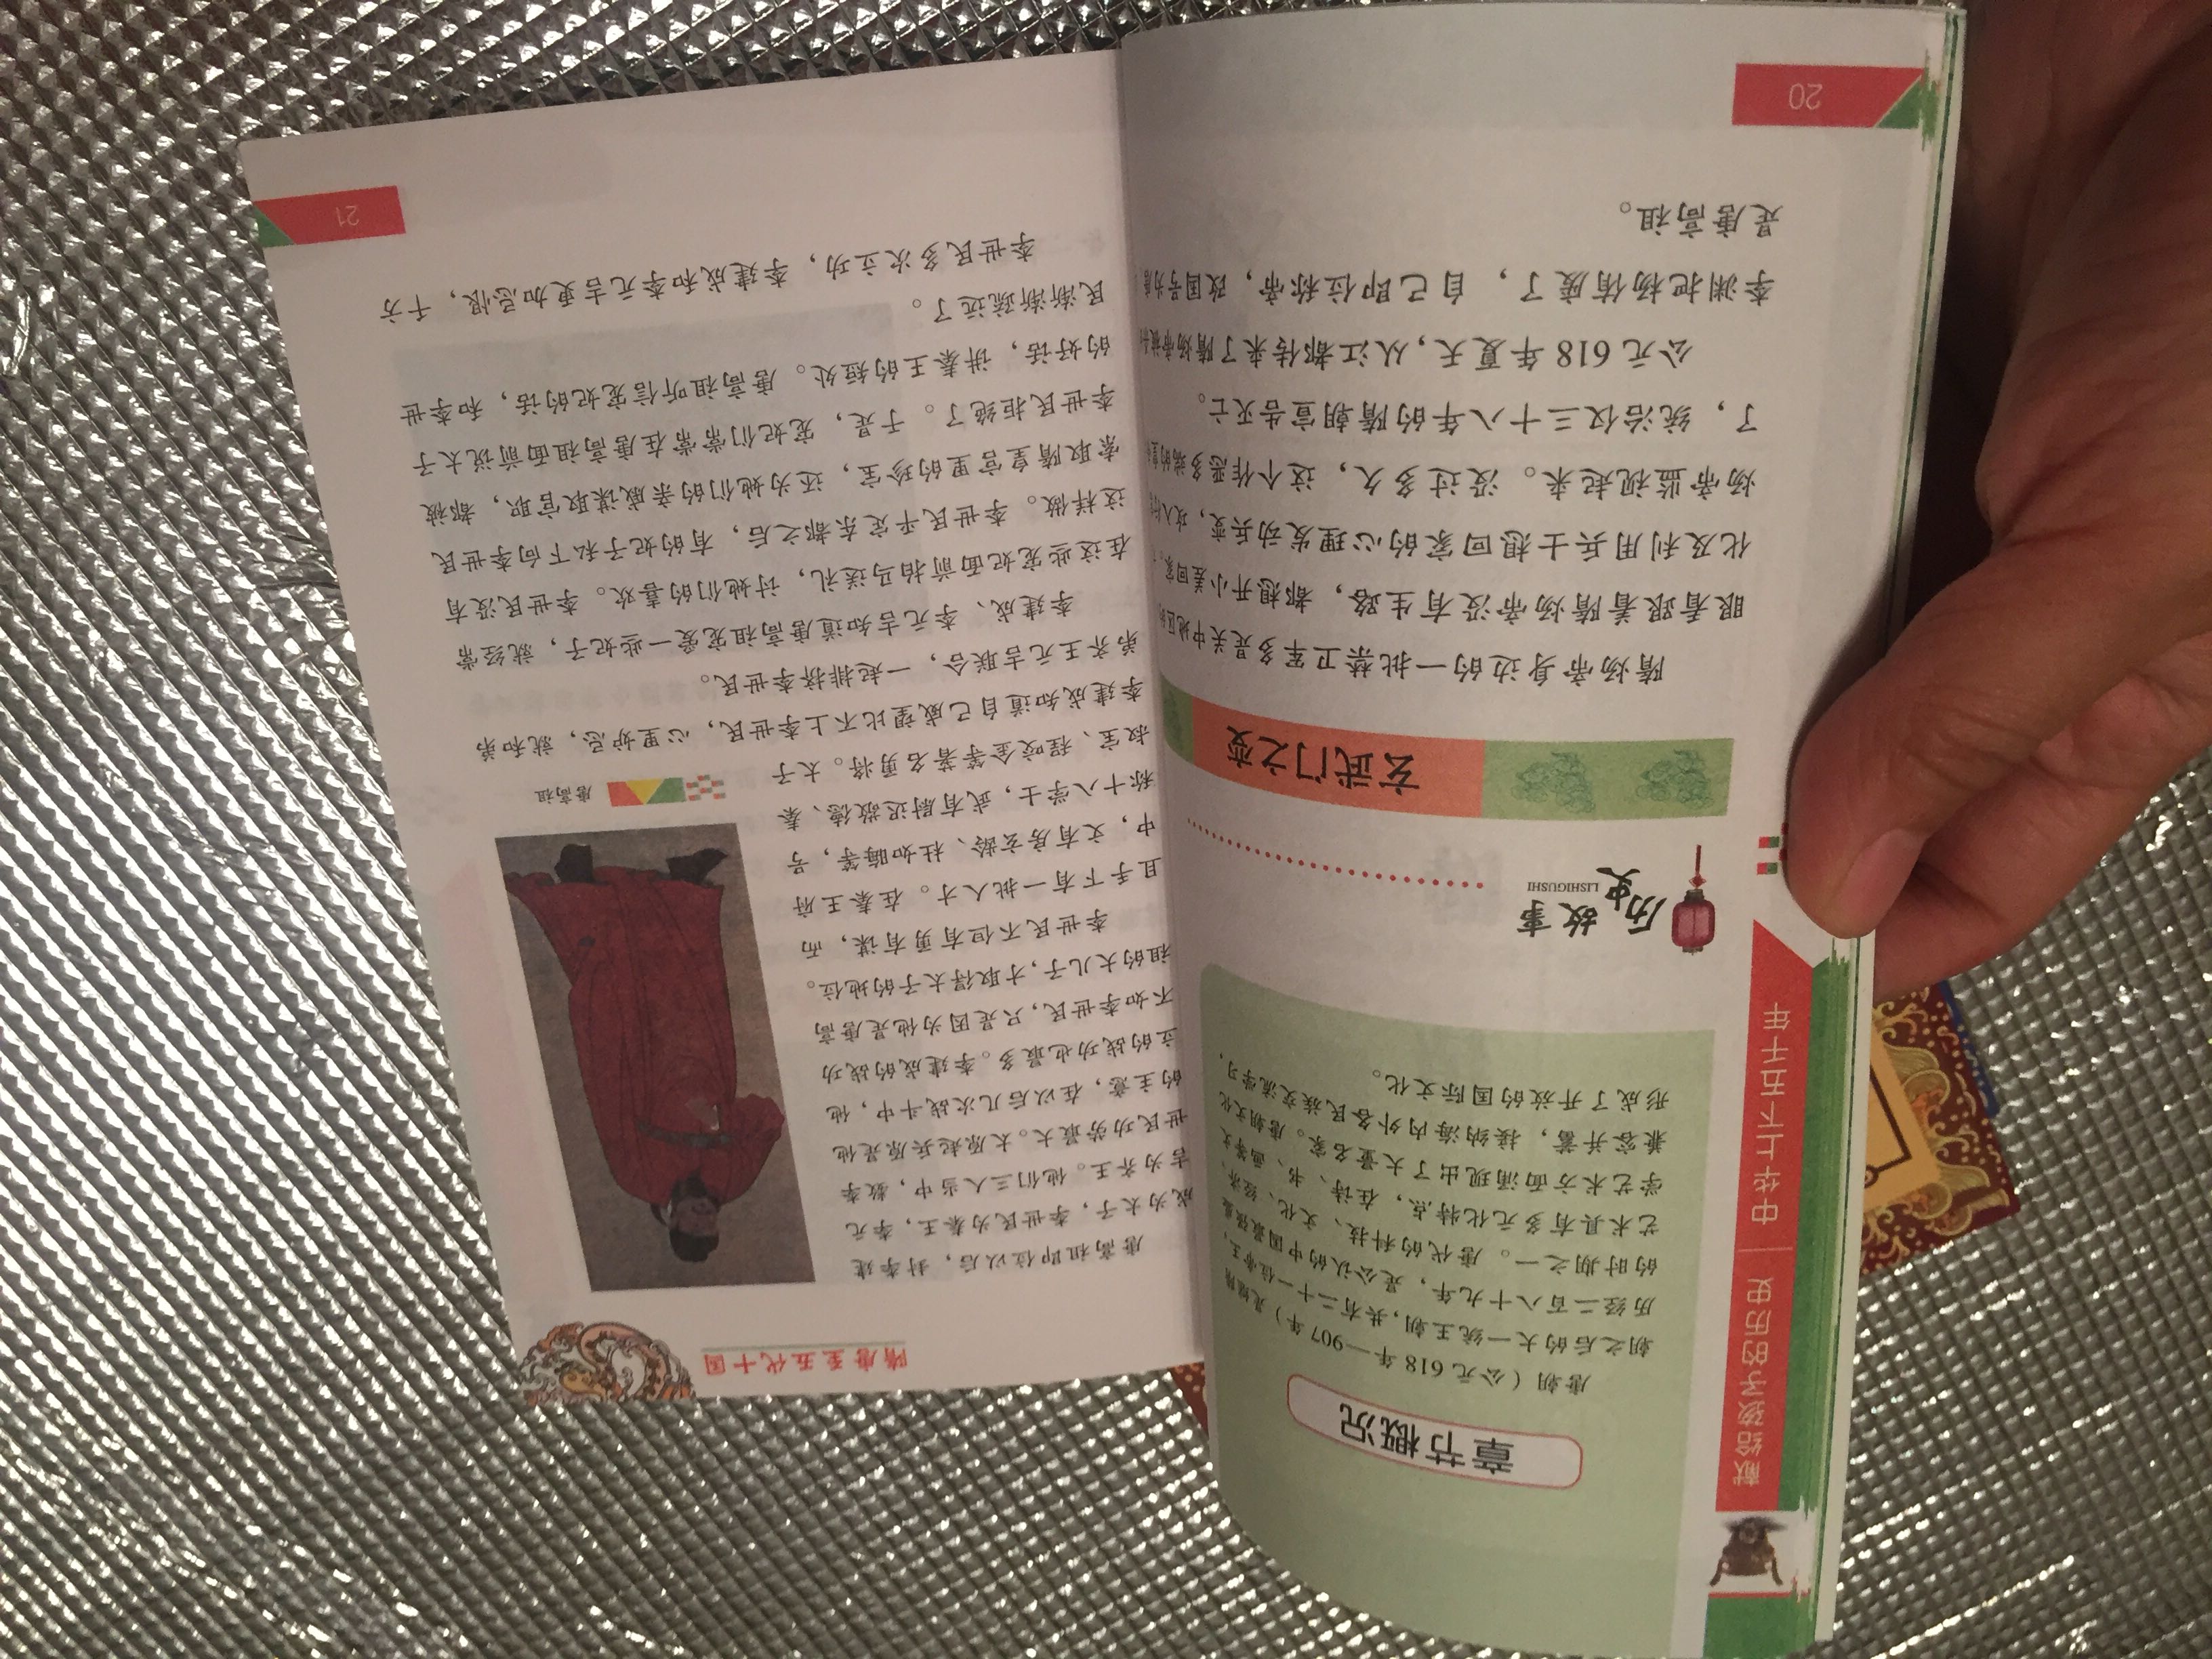 献给孩子的历史 中华上下五千年
章节概况
唐朝（公元618年—907年）是继隋
朝之后的大一统王朝，共有二十一位帝王，
历经二百八十九年，是公认的中国最强盛
的时期之一。唐代的科技、文化、经济、
艺术具有多元化特点，在诗、书、画等文
学艺术方面涌现出了大量名家。唐朝文化
兼容并蓄，接纳海内外各民族交流学习，
形成了开放的国际文化。
历史故事
LISHIGUSHI
玄武门之变
隋炀帝身边的一批禁卫军多是关中地区的
眼看跟着隋炀帝没有生路，都想开小差回家。
化及利用兵士想回家的心理发动兵变，攻入
炀帝监视起来。没过多久，这个作恶多端的
了，统治仅三十八年的隋朝宣告灭亡。
公元618年夏天，从江都传来了隋炀帝被
李渊把杨侑废了，自己即位称帝，改国号为唐
是唐高祖。
20
隋唐至五代十国
唐高祖即位以后，封李建
成为太子，李世民为秦王，李元
吉为齐王。他们三人当中，数李
世民功劳最大。太原起兵原是他
的主意，在以后几次战斗中，他
立的战功也最多。李建成的战功
不如李世民，只是因为他是唐高
祖的大儿子，才取得太子的地位。
李世民不但有勇有谋，而
且手下有一批人才。在秦王府
中，文有房玄龄、杜如晦等，号
称十八学士，武有尉迟敬德、秦
叔宝、程咬金等著名勇将。太子
唐高祖
李建成知道自己威望比不上李世民，心里妒忌，就和弟
弟齐王元吉联合，一起排挤李世民。
李建成、李元吉知道唐高祖宠爱一些妃子，就经常
在这些宠妃面前拍马送礼，讨她们的喜欢。李世民没有
这样做。李世民平定东都之后，有的妃子私下向李世民
索取隋皇宫里的珍宝，还为她们的亲戚谋取官职，都被
李世民拒绝了。于是，宠妃们常常在唐高祖面前说太子
的好话，讲秦王的短处。唐高祖听信宠妃的话，和李世
民渐渐疏远了。
李世民多次立功，李建成和李元吉更加忌恨，千方
21